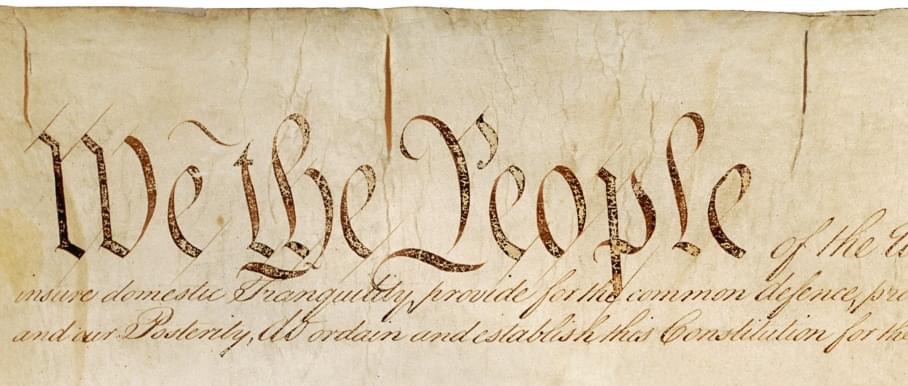 We the People of the U
insure domestic Tranquility, provide for the common defence, pro
and our Posterity, do ordain and establish this Constitution for the